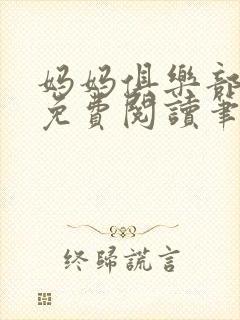 妈妈俱樂部
免費閱讀筆
终歸謊言